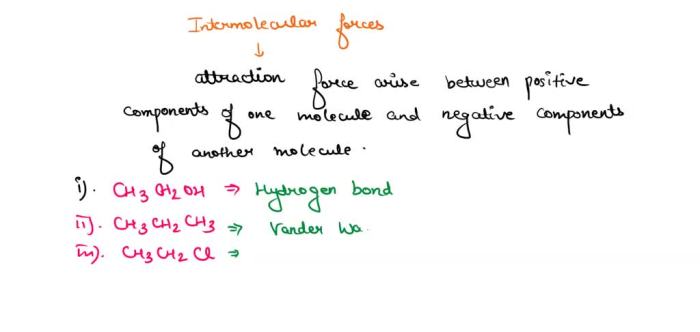 Intermolecular forces
↓
attraction force arise between positive
components of one molecule and negative components
of another molecule.
i). CH3CH2OH ⇒ Hydrogen bond
ii). CH3CH2CH3 ⇒ Vander Wa
iii). CH3CH2Cl ⇒